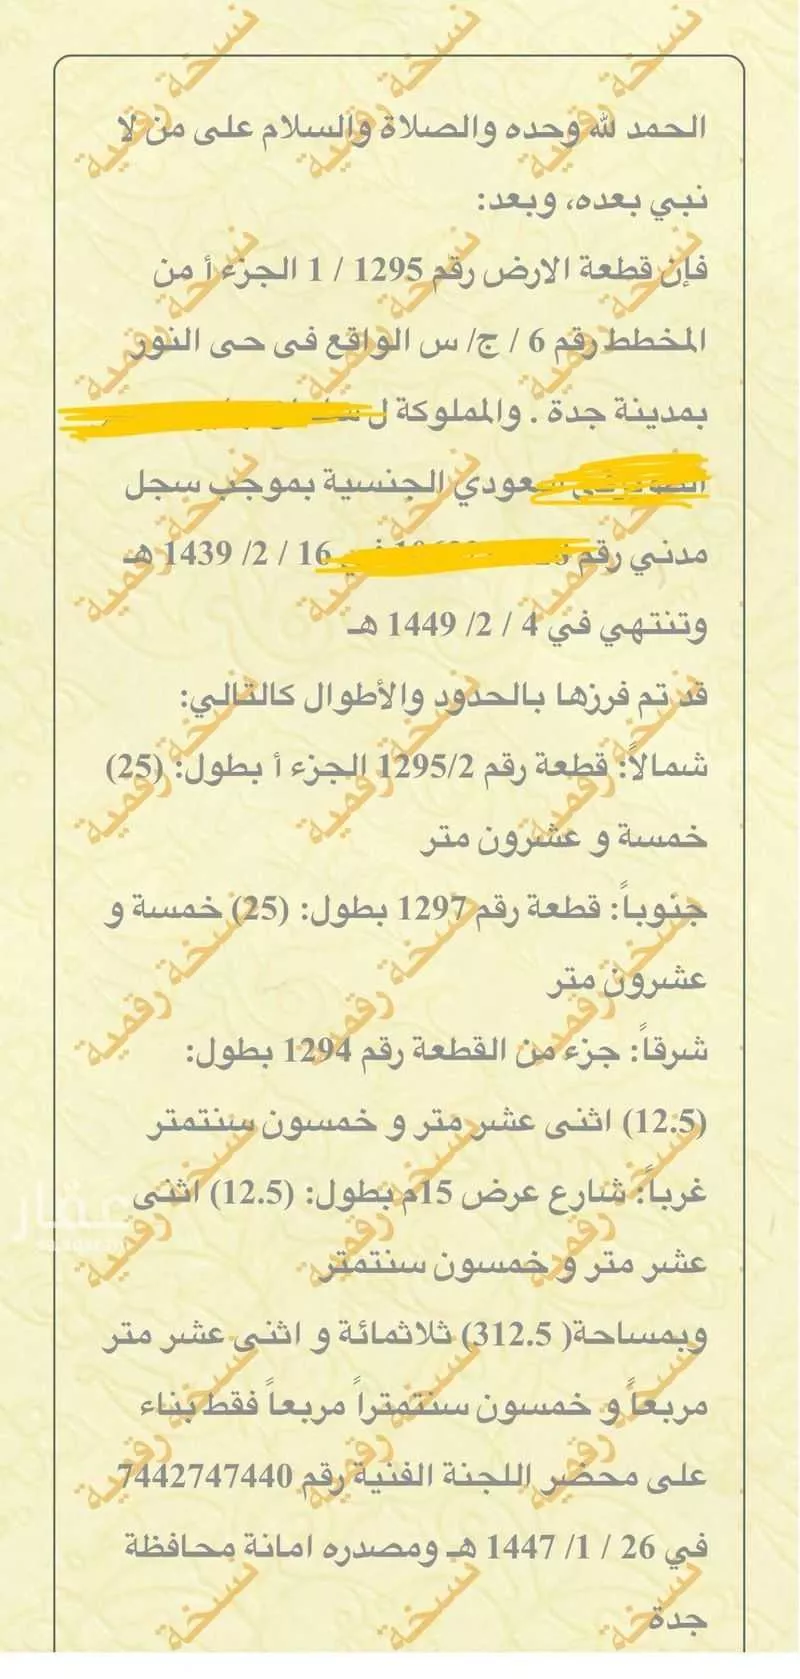 الحمد لله وحده والصلاة والسلام على من لا
نبي بعده، وبعد:
فإن قطعة الارض رقم 1295 / 1 الجزء أ من
المخطط رقم 6 / ج/ س الواقع فى حى النور
بمدينة جدة . والمملوكة ل
سعودي الجنسية بموجب سجل
مدني رقم في 16 / 2/ 1439 هـ
وتنتهي في 4 / 2/ 1449 هـ
قد تم فرزها بالحدود والأطوال كالتالي:
شمالاً: قطعة رقم 1295/2 الجزء أ بطول: (25)
خمسة و عشرون متر
جنوباً: قطعة رقم 1297 بطول: (25) خمسة و
عشرون متر
شرقاً: جزء من القطعة رقم 1294 بطول:
(12.5) اثنى عشر متر و خمسون سنتمتر
غرباً: شارع عرض 15م بطول: (12.5) اثنى
عشر متر و خمسون سنتمتر
وبمساحة( 312.5) ثلاثمائة و اثنى عشر متر
مربعاً و خمسون سنتمتراً مربعاً فقط بناء
على محضر اللجنة الفنية رقم 7442747440
في 26 / 1/ 1447 هـ ومصدره امانة محافظة
جدة
نسخة رقمية
عقار